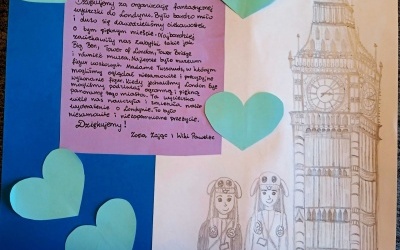 Dziękujemy za organizację fantastycznej
wycieczki do Londynu. Było bardzo miło
i dużo się dowiedzieliśmy ciekawostek
o tym pięknym mieście. Najbardziej
zaciekawiły nas zabytki, takie jak
Big Ben, Tower of London, Tower Bridge
i również muzea. Najlepsze było muzeum
figur woskowych Madame Tussauds, w którym
mogliśmy oglądać niesamowite i precyzyjne
wykonane figury. Kiedy jechaliśmy London Eye
mogliśmy podziwiać ogromną i piękną
panoramę tego miasta. Ta wycieczka
wiele nas nauczyła i zmieniła nasze
wyobrażenie o Londynie. To było
niesamowite i niezapomniane przeżycie.
Dziękujemy!
Zosia Zając i Wiki